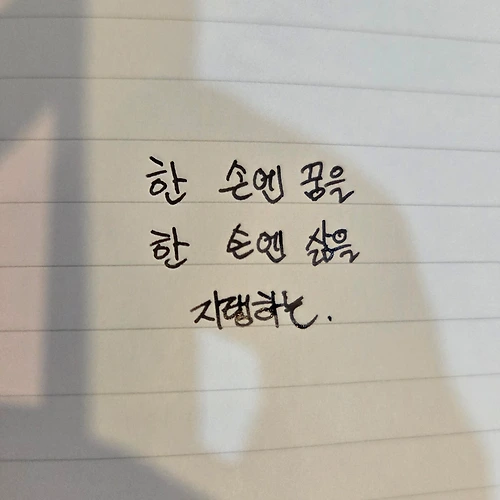 한 손엔 꿈을
한 손엔 삶을
지탱하는.